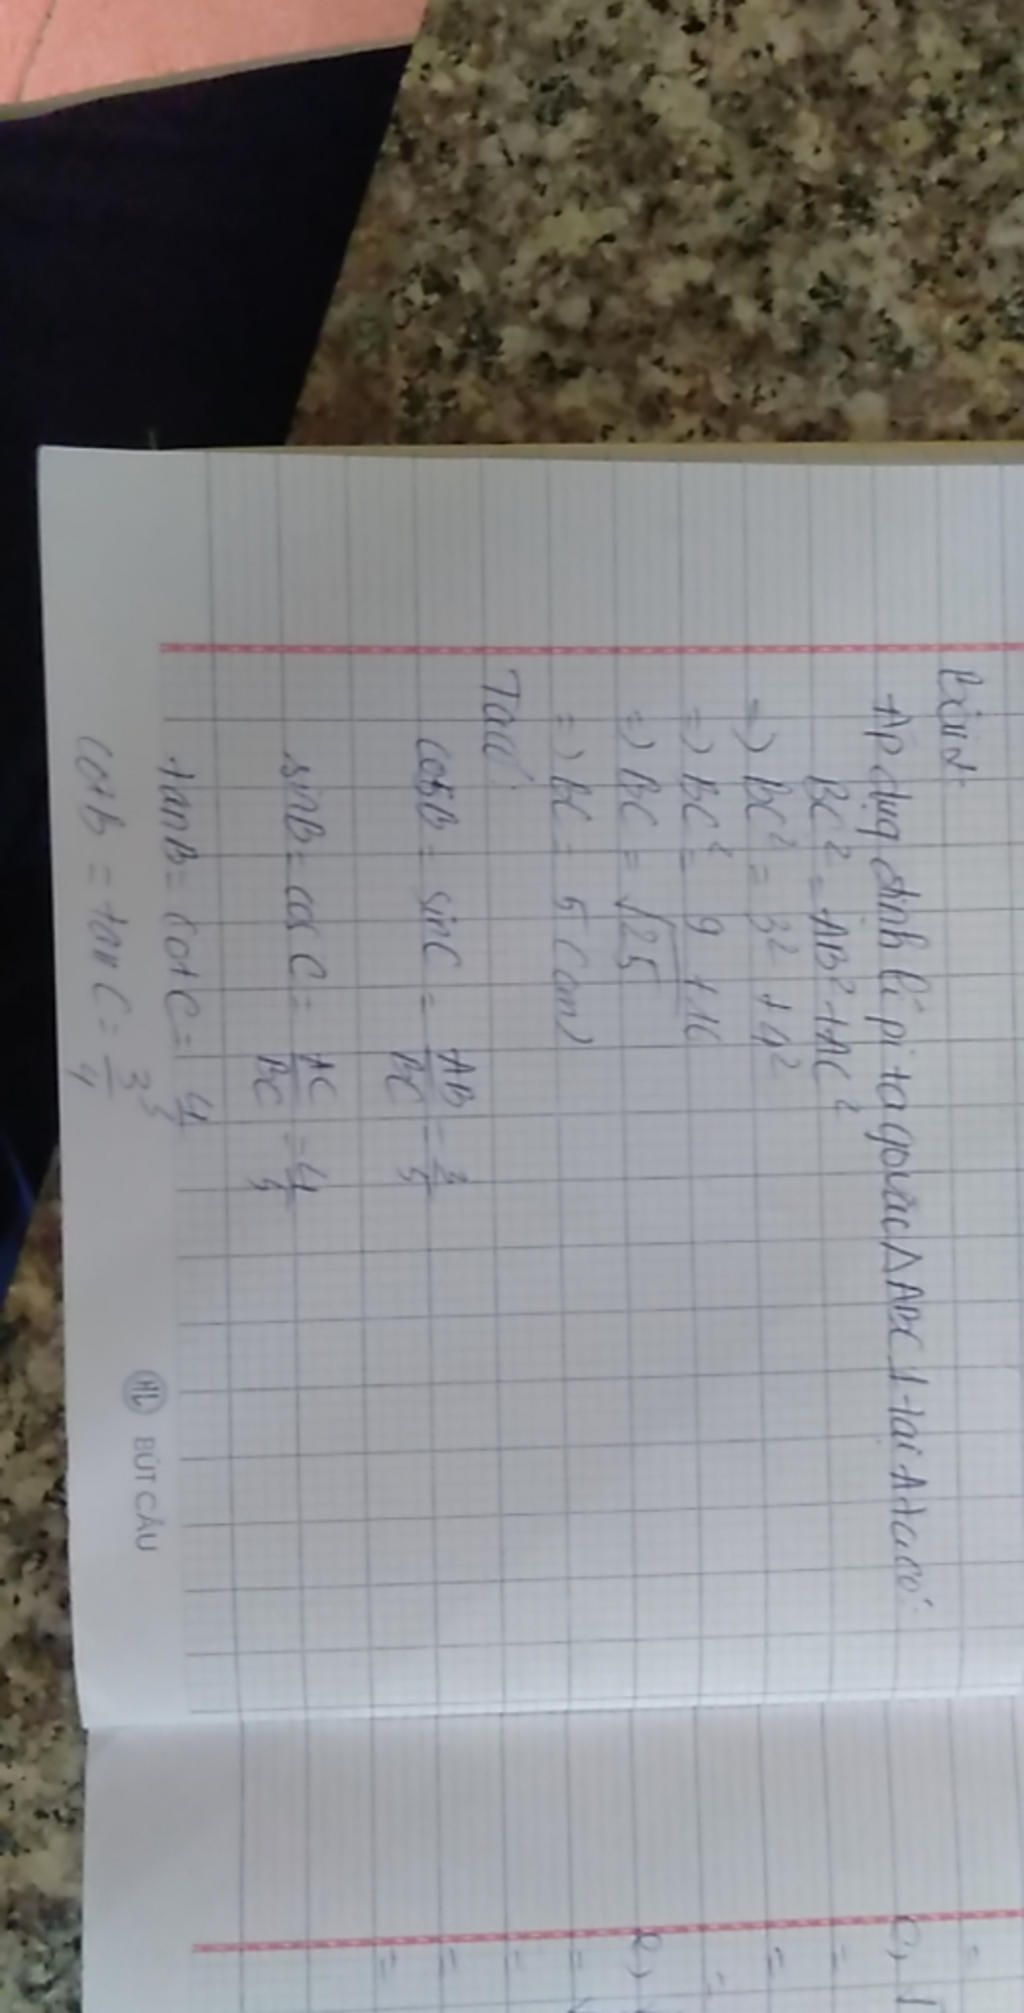 Bài 1:
Áp dụng định lí pi ta go vào △ABC ⊥ tại A ta có:
BC² = AB² + AC²
=> BC² = 3² + 4²
=> BC² = 9 + 16
=> BC = √25
=> BC = 5 (cm)
Ta có:
cosB = sinC = AB/BC = 3/5
sinB = cosC = AC/BC = 4/5
tanB = cotC = 4/3
cotB = tanC = 3/4
HL BÚT CÂU
c,
e,